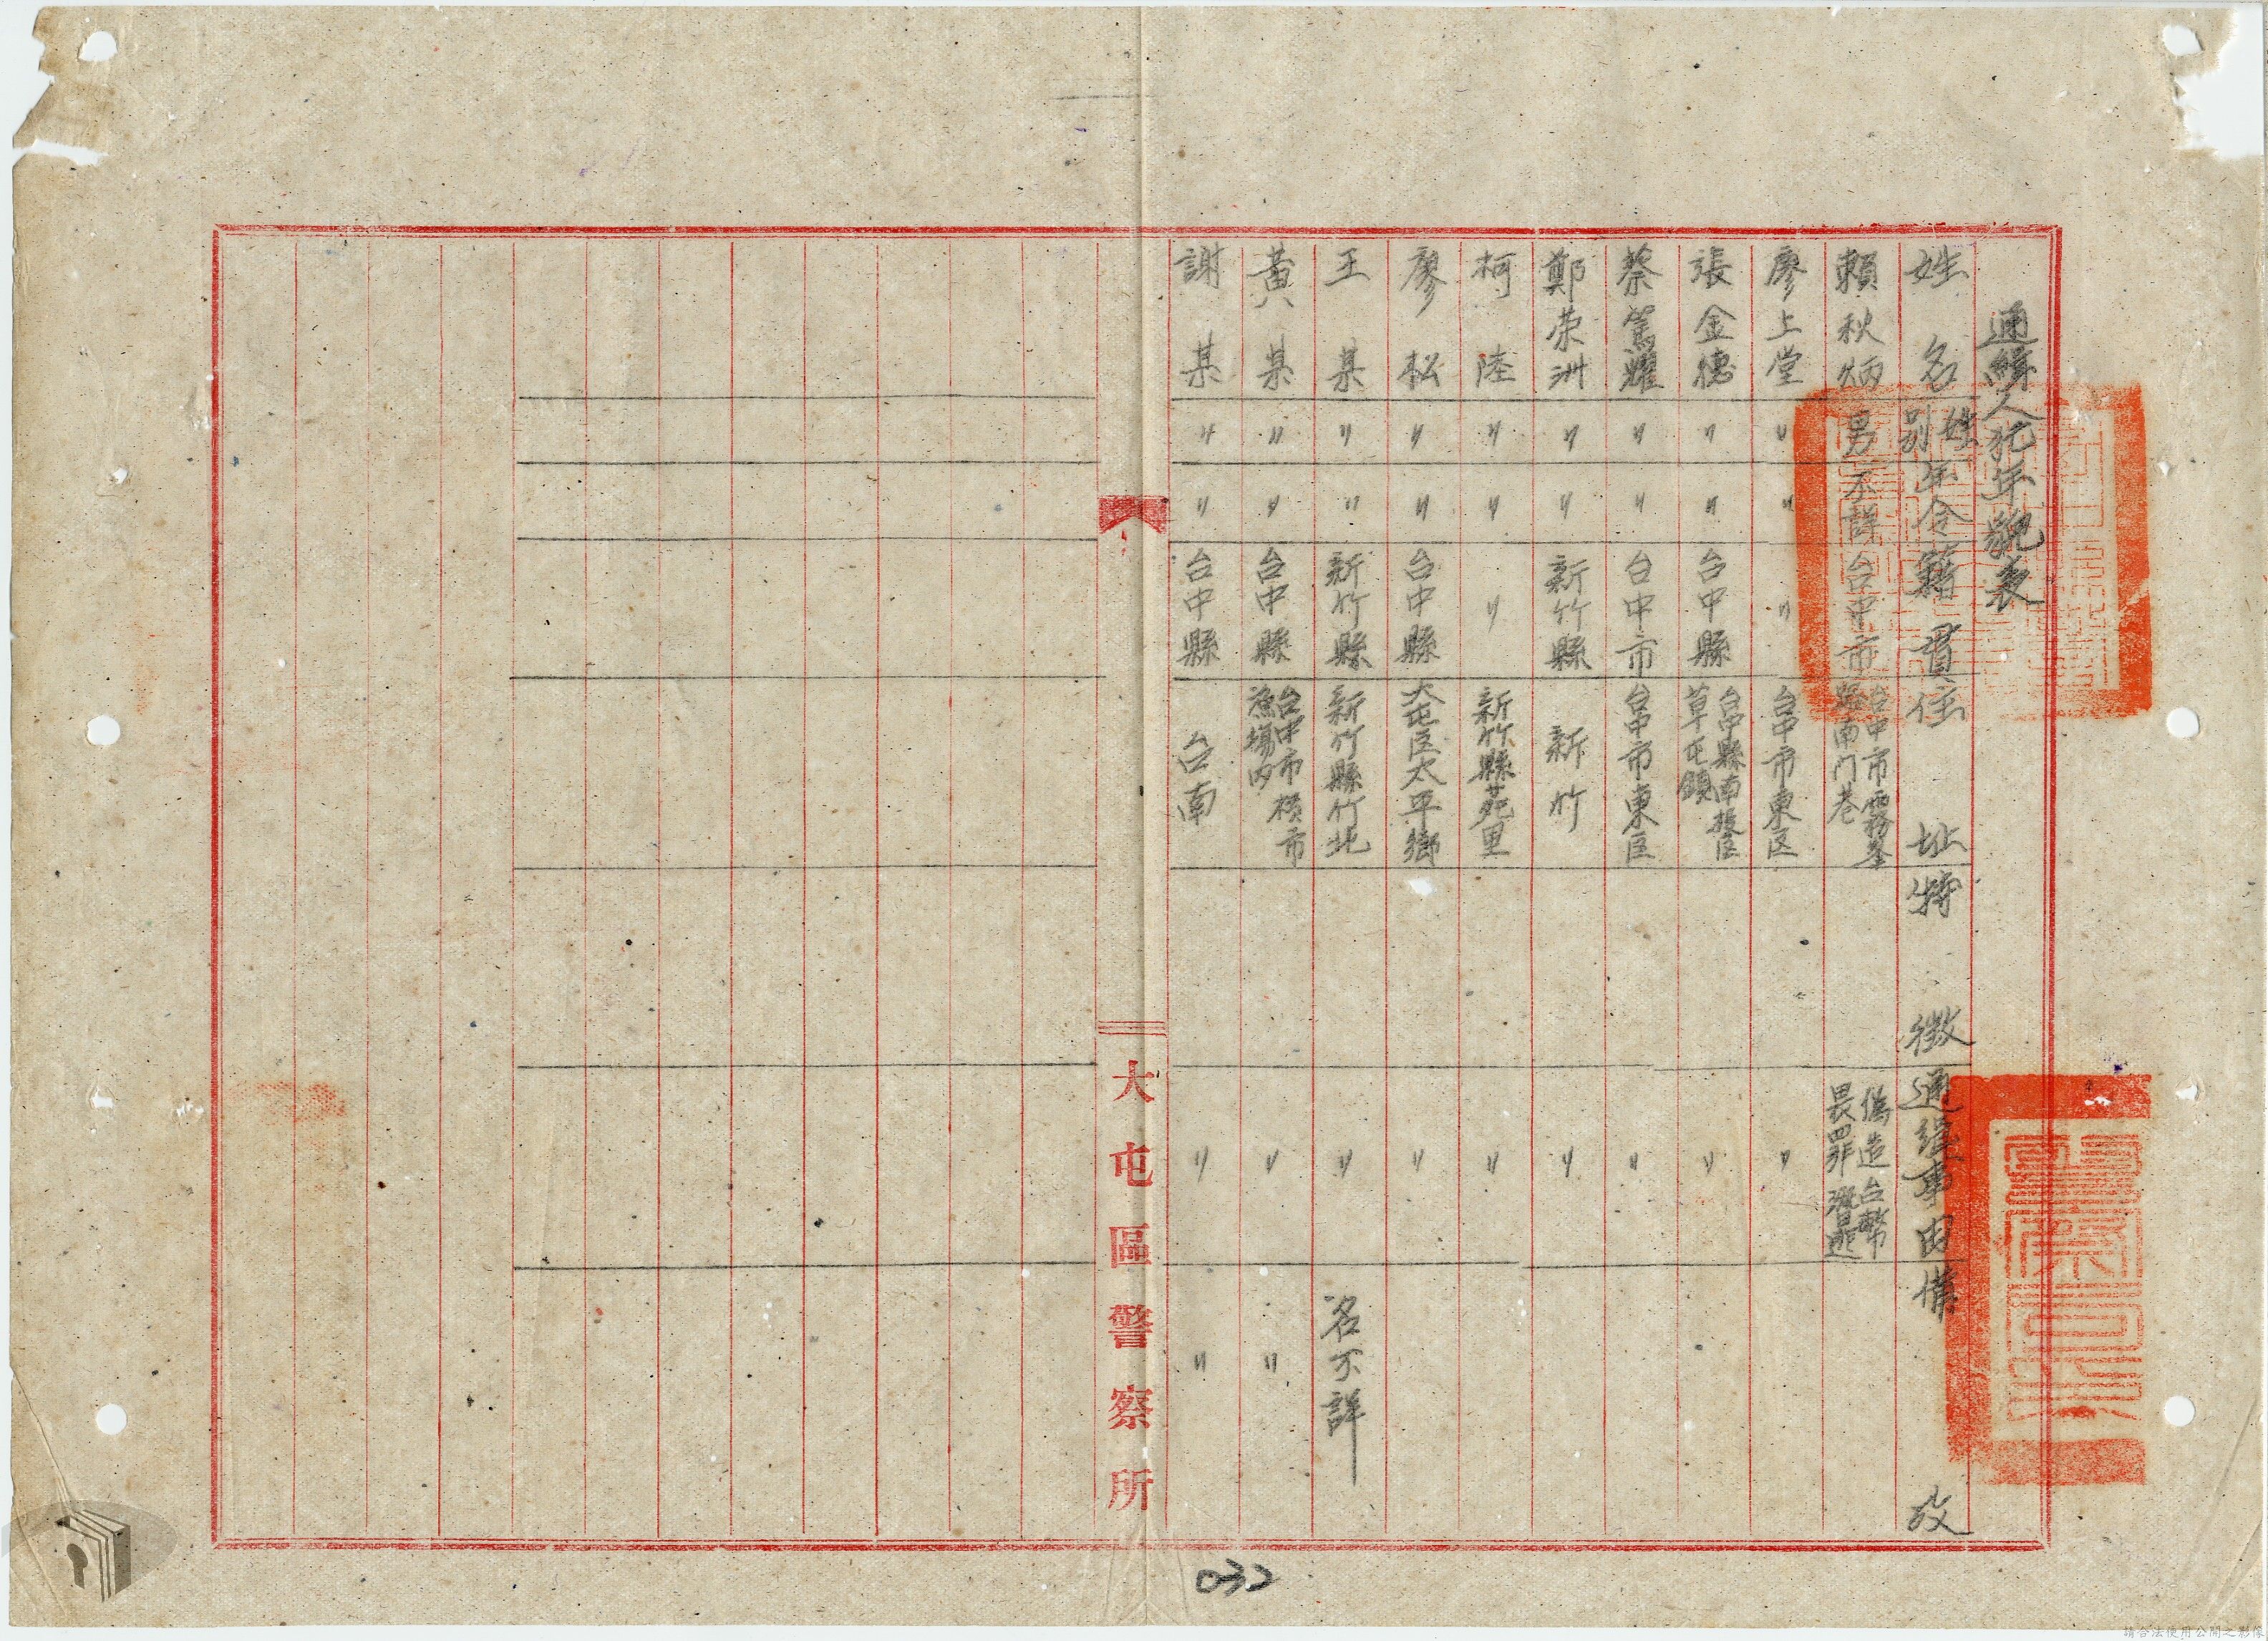 通緝人犯年貌表
姓名 姓別 年令 籍貫 住址 特徵 通緝事由 備攷
賴秋炳 男 不詳 台中市 台中市霧峯路南門巷 偽造台幣畏罪潛逃
廖上堂 〃 〃 〃 台中市東区 〃
張金德 〃 〃 台中縣 台中縣南投区草屯鎮 〃
蔡篤耀 〃 〃 台中市 台中市東区 〃
鄭荣洲 〃 〃 新竹縣 新竹 〃
柯陸 〃 〃 〃 新竹縣苑里 〃
廖松 〃 〃 台中縣 大屯区太平鄉 〃
王某 〃 〃 新竹縣 新竹縣竹北 〃 名不詳
黃某 〃 〃 台中縣 台中市横市漁場内 〃 〃
謝某 〃 〃 台中縣 台南 〃 〃
大屯區警察所
032
請合法使用公開之影像